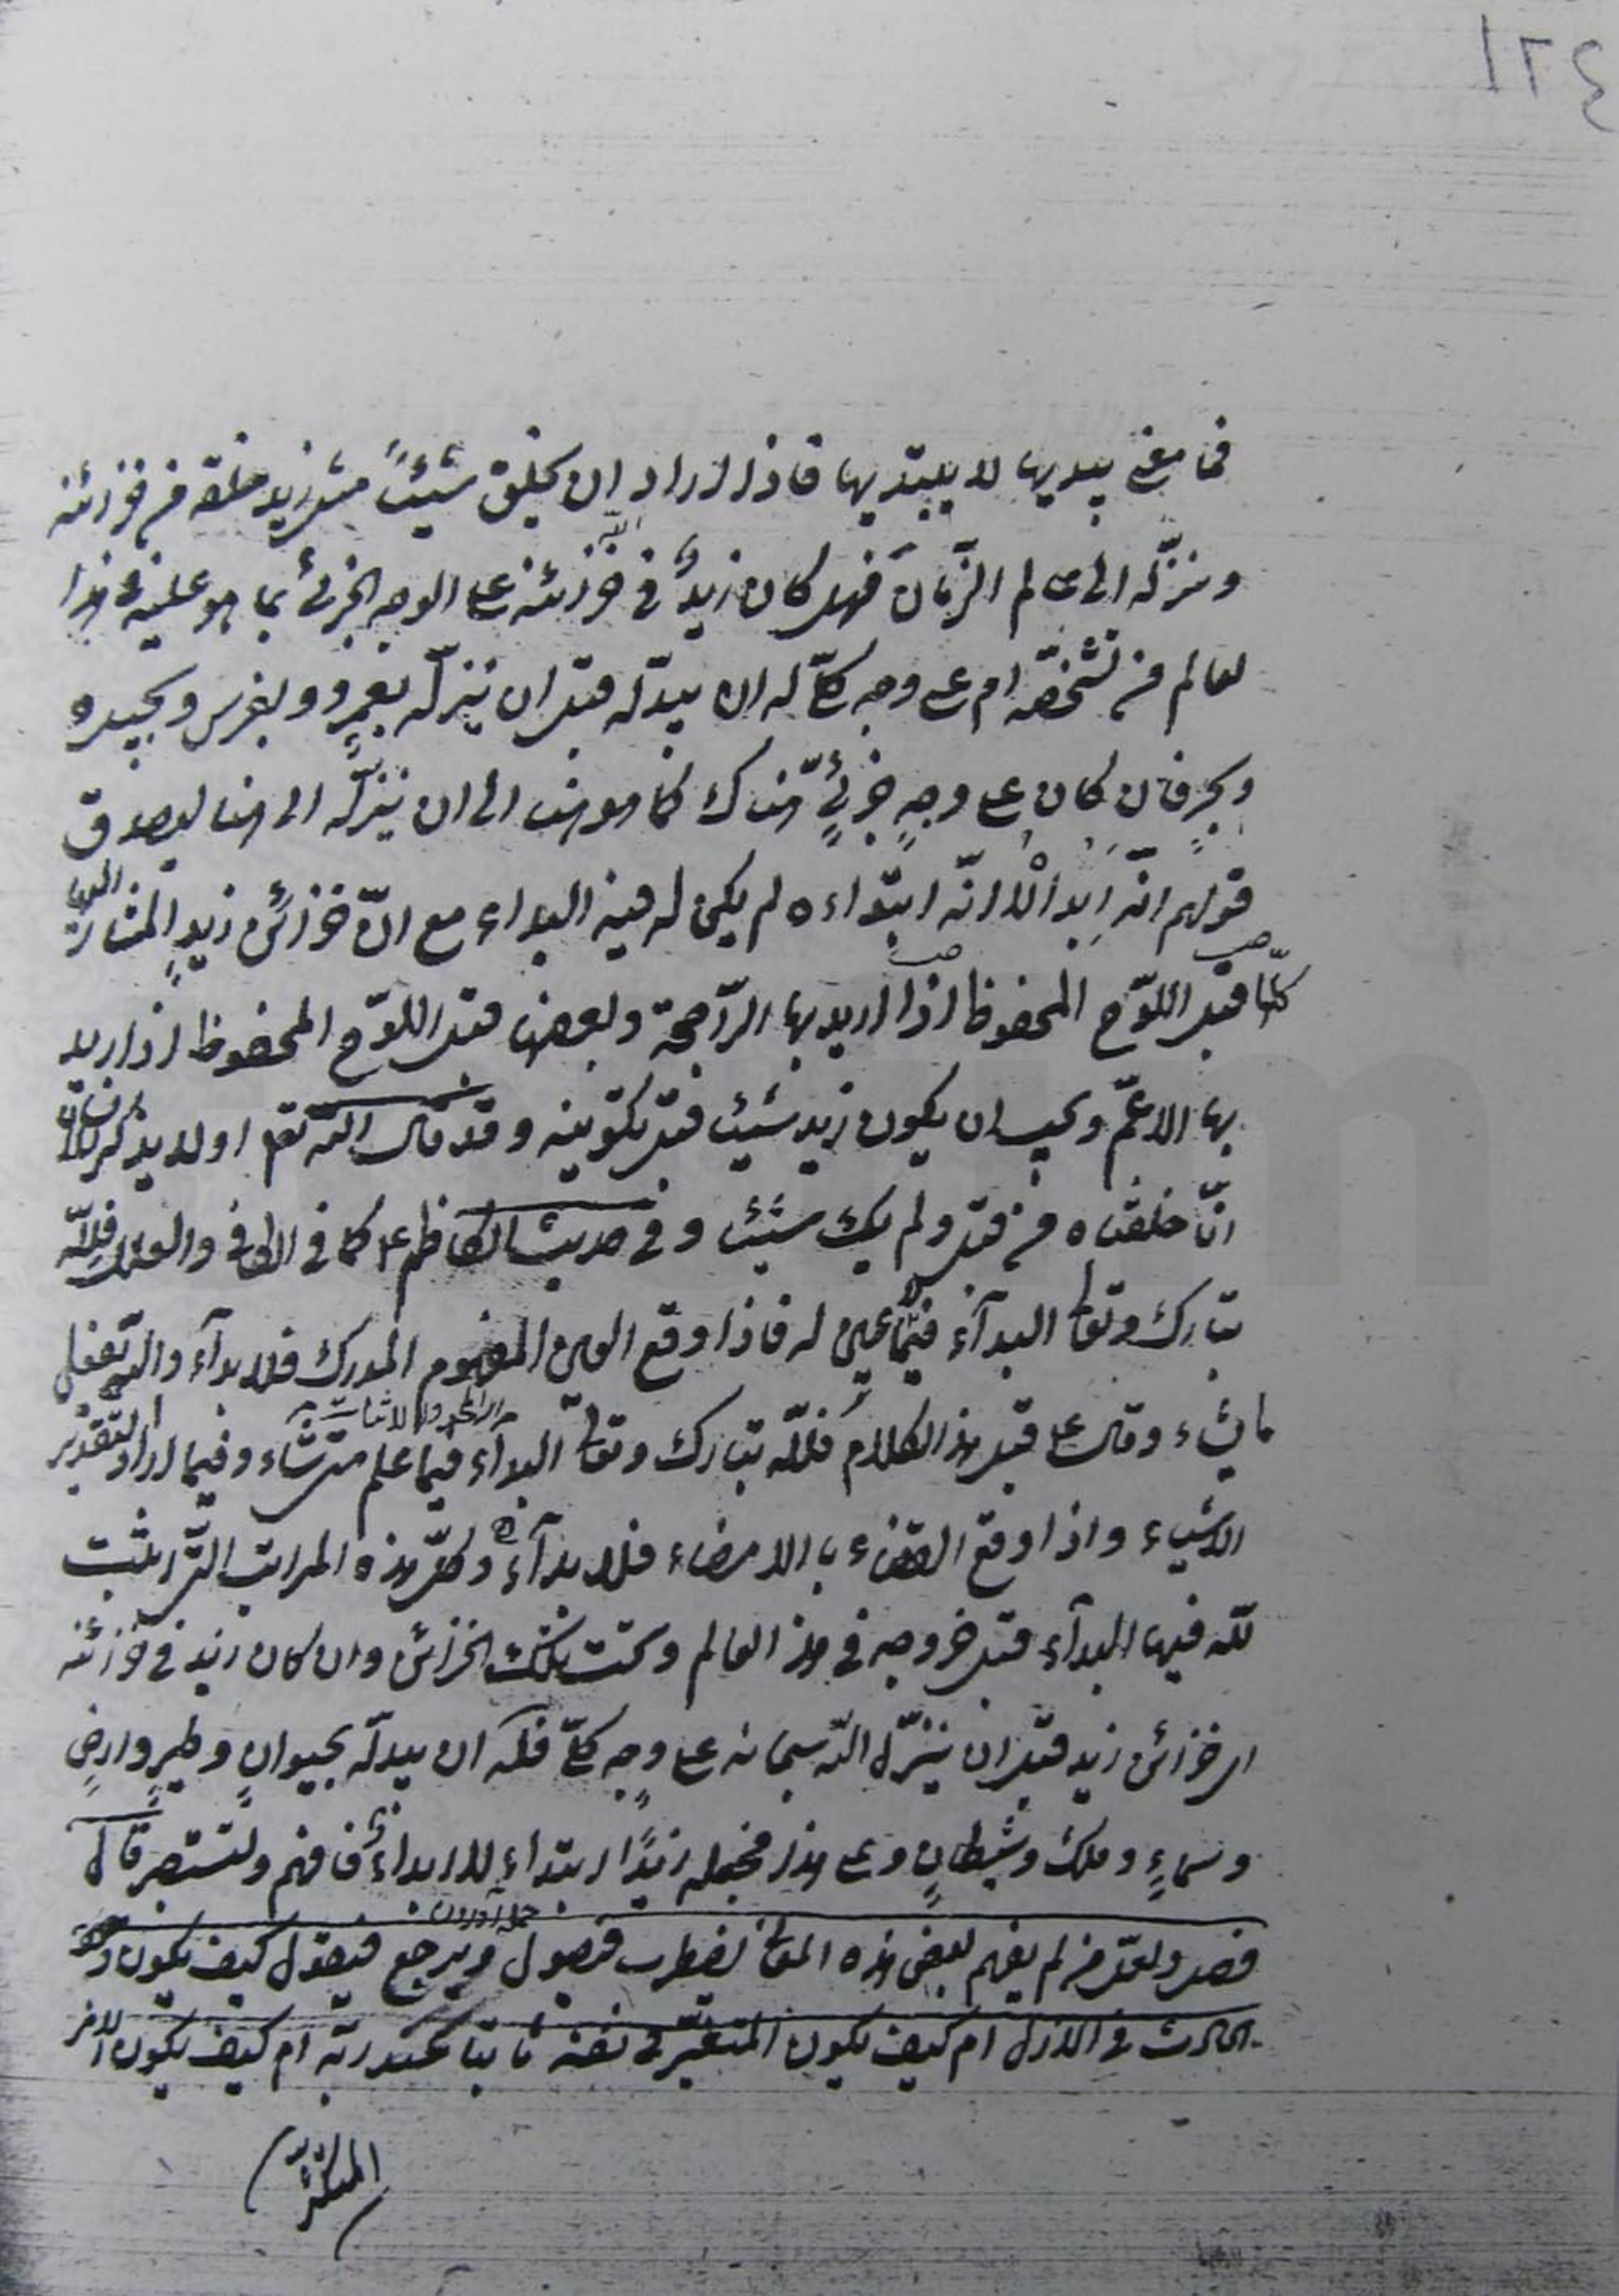 ١٢٤
فما معنى يبديها لا يبتديها فاذا اراد ان يخلق شيئاً مثل زيد خلقه من خزائنه
ونزّله الى عالم الزّمان فهل كان زيد في خزائنه على الوجه الجزئي بما هو عليه في هذا
لعالم من تشخّصه ام على وجه كلّي له ان يبدّله قبل ان ينزّله بعمرو وبفرس وبجبل
وبحرٍ فان كان على وجهٍ جزئيٍّ هناك كما هو هنا الى ان ينزّله الى هنا ليصدق
قولهم انّه ابداه لا انّه ابتداءه لم يكن له فيه البداء مع انّ خزائن زيدٍ المشار اليها
كلّها قبل اللّوح المحفوظ اذا اريد بها الراجحة وبعضها قبل اللّوح المحفوظ اذا اريد
بها الاعمّ ويجب ان يكون زيد شيئا قبل تكوينه وقد قال الله تعالى اولا يذكر الانسان
انّا خلقناه من قبل ولم يك شيئا وفي حديث الكاظم ع كما في الكافي والعلل فللّه
تبارك وتعالى البدآء فيما لا عين له فاذا وقع العين المفهوم المدرك فلا بدآء والله يفعل
ما يشاء وقال ع قبل هذا الكلام فللّه تبارك وتعالى البدآء فيما علم متى شاء وفيما اراد لتقدير
الاشياء واذا وقع القضاء بالامضاء فلا بدآء وكلّ هذه المراتب الّتي اثبت
للّه فيها البدآء قبل خروجه في هذا العالم وتحت تلك الخزائن وان كان زيد في خزائنه
اي خزائن زيد قبل ان ينزّله اللّه سبحانه على وجه كلّي فله ان يبدلّه بحيوانٍ وطيرٍ وارضٍ
وسماءٍ وملك وشيطانٍ وعلى هذا فجعله زيدًا ابتداء لا ابداء فافهم ولتستبصر قال
فصل ولعلّ من لم يفهم بعض هذه المعانى يضطرب فيصول ويرجع فيقول كيف يكون وجود
الحادث في الازل ام كيف يكون المتغيّر في نفسه ثابتا عند ربّه ام كيف يكون الامر
المتكثّر